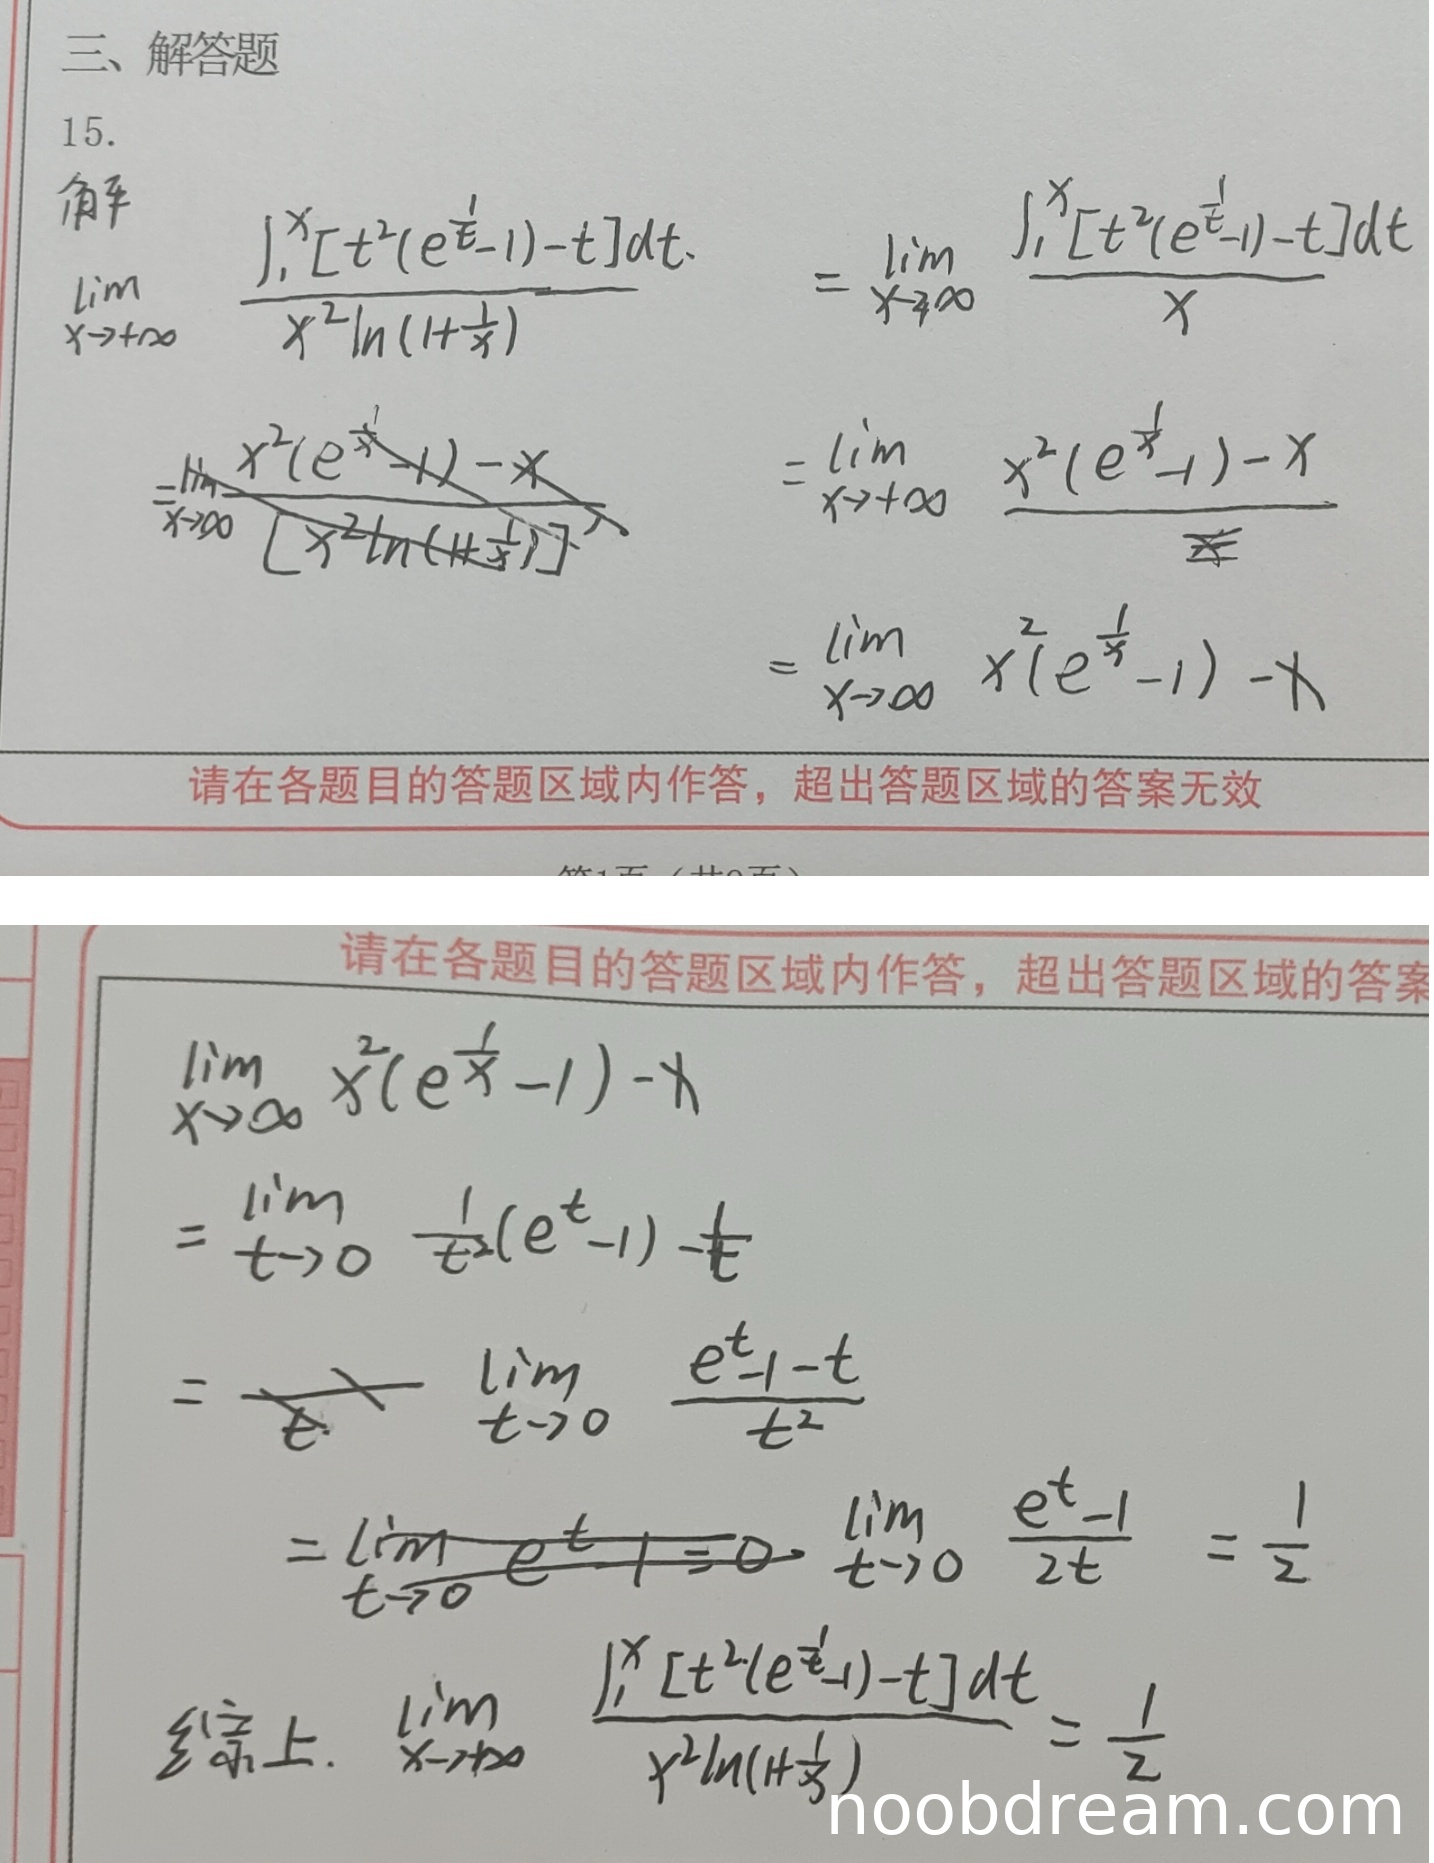 三、解答题
15.
解
lim x→+∞ ∫₁ˣ[t²(e^{1/t}-1)-t]dt. / x²ln(1+1/x)
= lim x→+∞ ∫₁ˣ[t²(e^{1/t}-1)-t]dt / x
= lim x→∞ x²(e^{1/x}-1)-x / [x²ln(1+1/x)]'
= lim x→+∞ x²(e^{1/x}-1)-x / x
= lim x→∞ x²(e^{1/x}-1)-x
请在各题目的答题区域内作答，超出答题区域的答案无效
第1页（共2页）
请在各题目的答题区域内作答，超出答题区域的答案
lim x→∞ x²(e^{1/x}-1)-x
= lim t→0 1/t²(e^t-1)-1/t
= t lim t→0 e^t-1-t / t²
= lim t→0 e^t-1=0 lim t→0 e^t-1 / 2t = 1/2
综上. lim x→+∞ ∫₁ˣ[t²(e^{1/t}-1)-t]dt / x²ln(1+1/x) = 1/2
noobdream.com